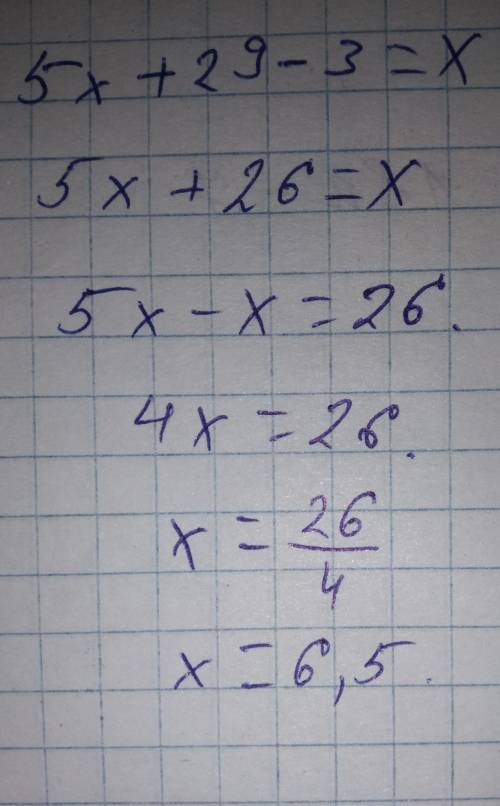 5x + 29 - 3 = x
5x + 26 = x
5x - x = 26.
4x = 26.
x = 26/4
x = 6,5.